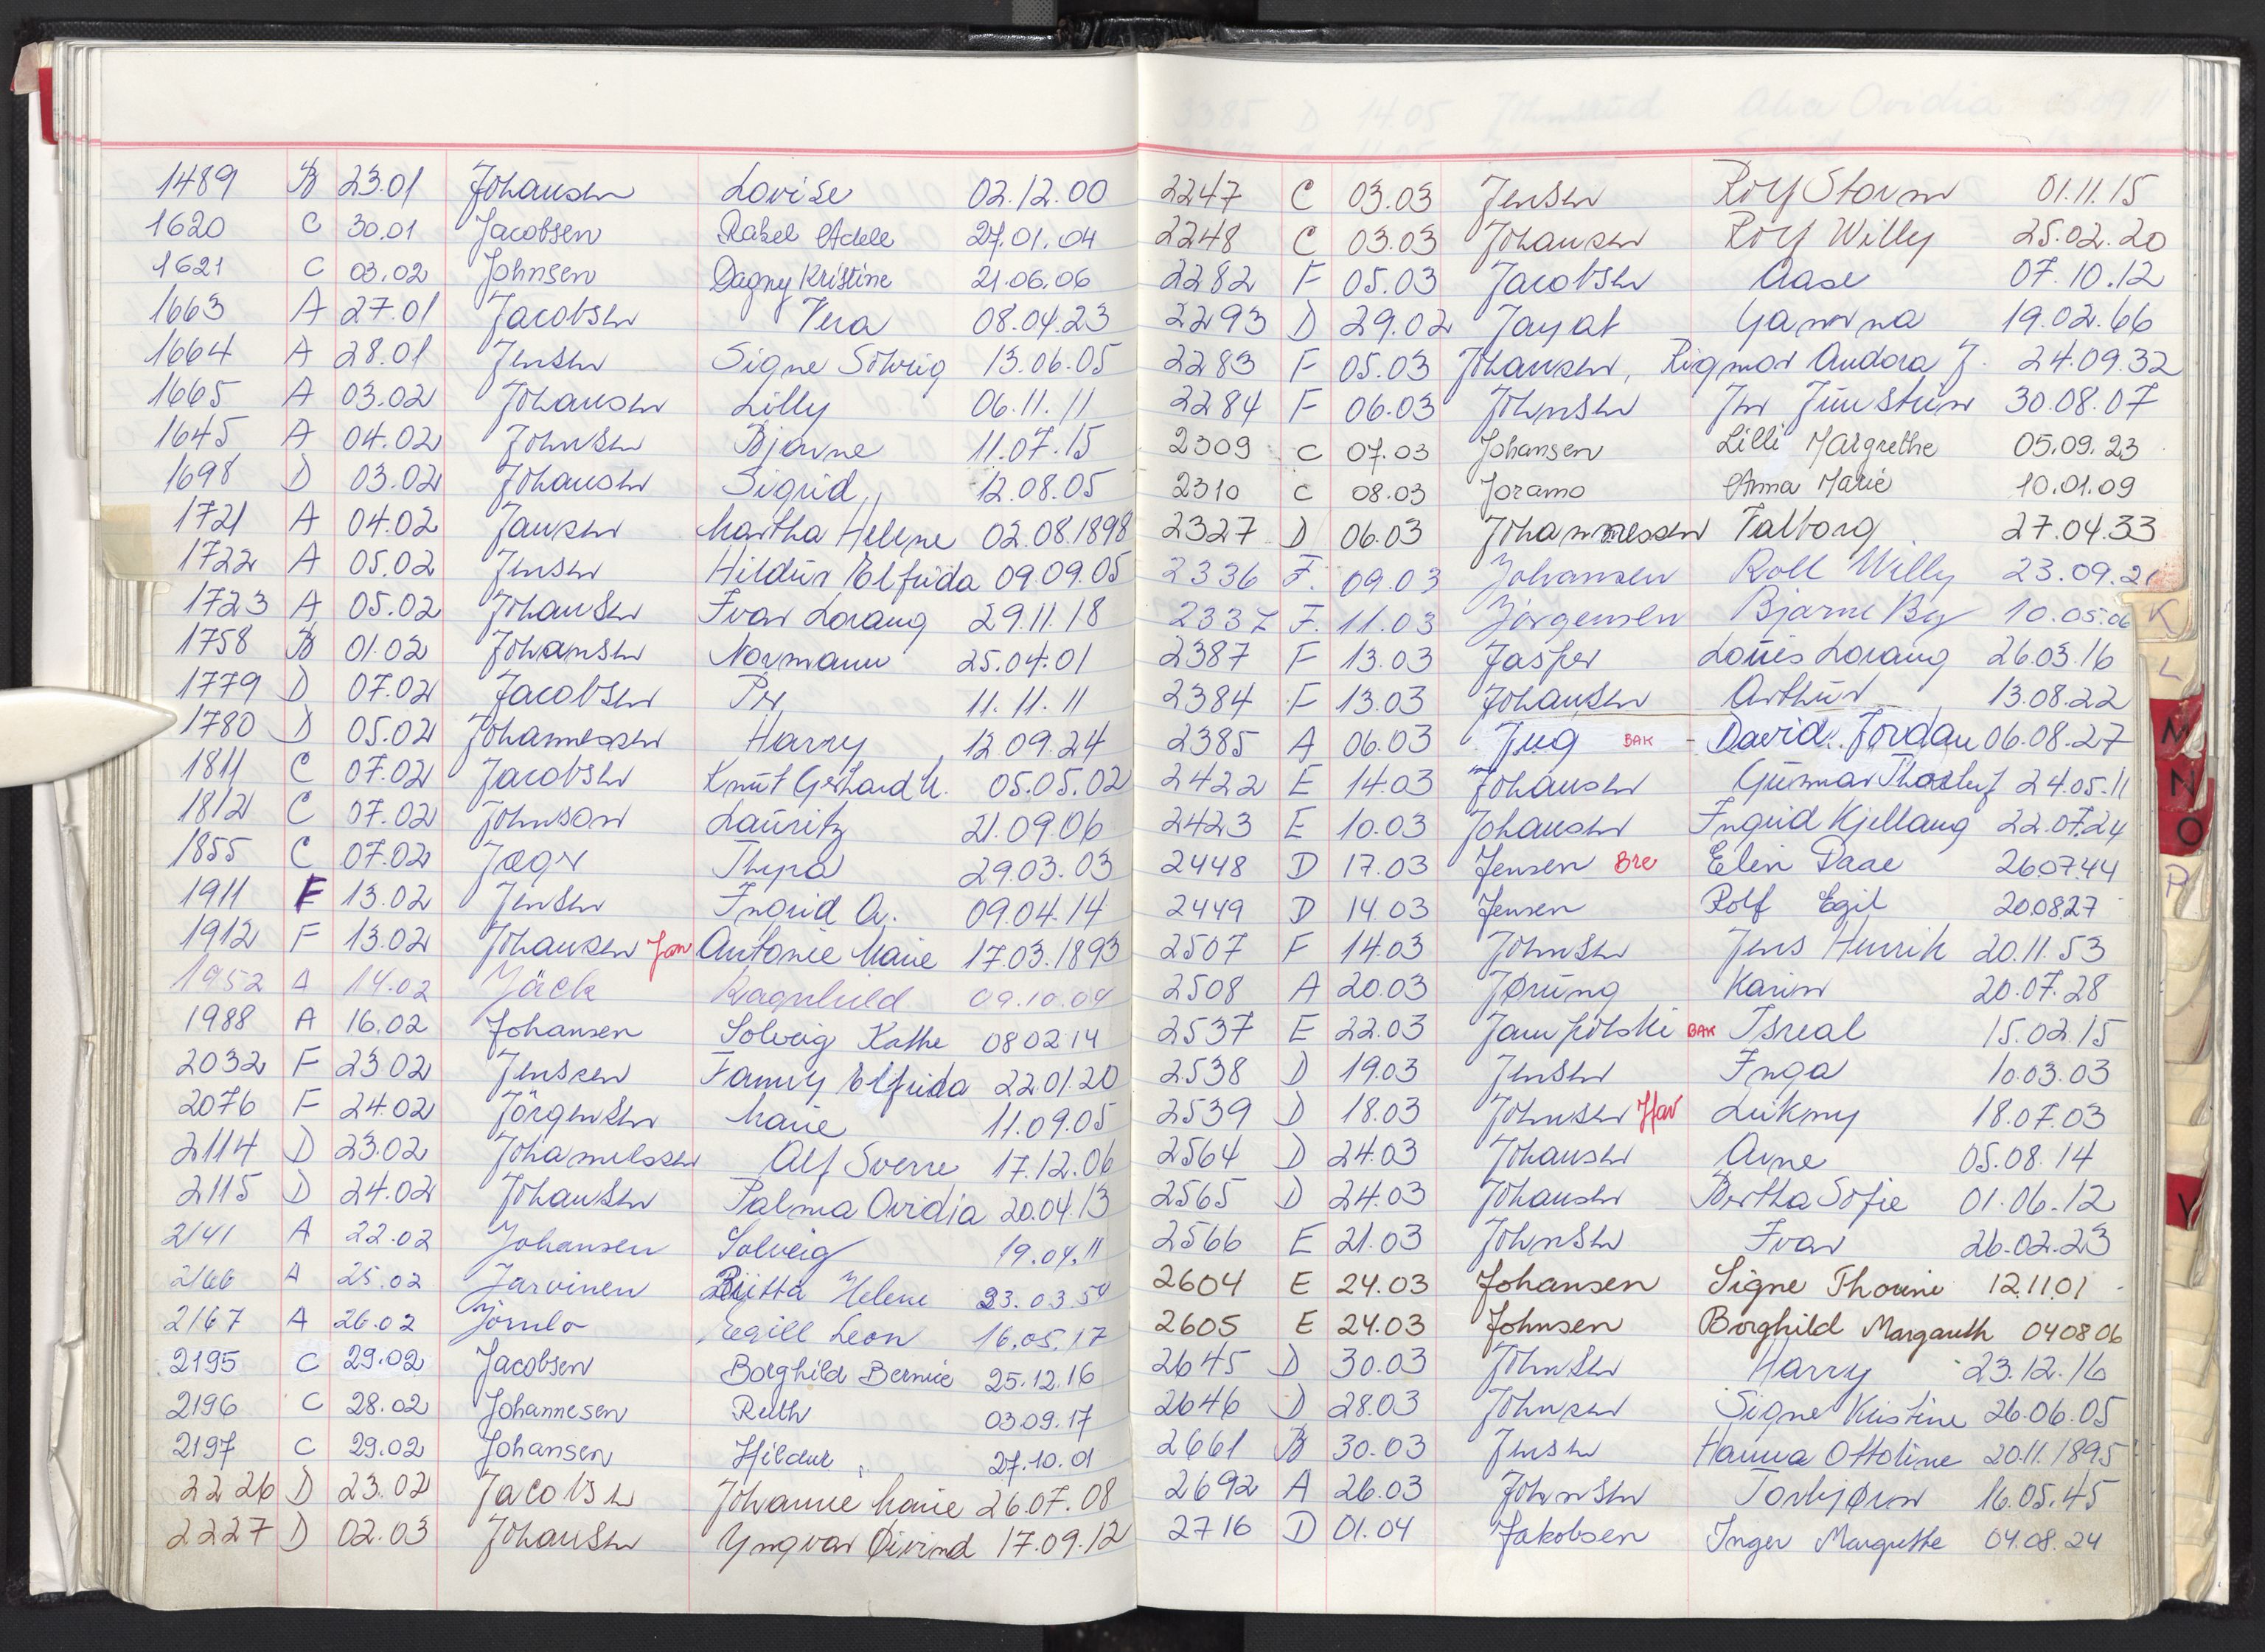 1489 B 23.01 Johansen Lovise 02.12.00
1620 C 30.01 Jacobsen Rakel Adele 27.01.04
1621 C 03.02 Johnsen Dagny Kristine 21.06.06
1663 A 27.01 Jacobsen Vera 08.04.23
1664 A 28.01 Jensen Signe Söhrig 13.06.05
1665 A 03.02 Johansen Lilly 06.11.11
1645 A 04.02 Johnsen Bjarne 11.07.15
1698 D 03.02 Johansen Sigrid 12.08.05
1721 A 04.02 Jansen Martha Helene 02.08.1898
1722 A 05.02 Jensen Hildur Elfrida 09.09.05
1723 A 05.02 Johansen Ivar Lorang 29.11.18
1758 B 01.02 Johansen Normann 25.04.01
1779 D 07.02 Jacobsen Per 11.11.11
1780 D 05.02 Johannessen Harry 12.09.24
1811 C 07.02 Jacobsen Knut Gerhard M. 05.05.02
1812 C 07.02 Johnson Lauritz 21.09.06
1855 C 07.02 Jæger Thyra 29.03.03
1911 F 13.02 Jensen Ingrid A. 09.04.14
1912 F 13.02 Johansen Jan Antonie Marie 17.03.1893
1952 A 14.02 Jäck Ragnhild 09.10.04
1988 A 16.02 Johansen Solveig Kathe 08 02 14
2032 F 23.02 Jensen Fanny Elfrida 22.01.20
2076 F 24.02 Jörgensen Marie 11.09.05
2114 D 23.02 Johannessen Alf Sverre 17.12.06
2115 D 24.02 Johansen Palma Ovidia 20.04.13
2141 A 22.02 Johansen Solveig 19.04.11
2166 A 25.02 Jarvinen Riitta Helene 23.03.54
2167 A 26.02 Jörulo Leon 16.05.17
2195 C 29.02 Jacobsen Borghild Bernie 25.12.16
2196 C 28.02 Johannesen Ruth 03.09.17
2197 C 29.02 Johansen Hildur 27.10.01
2226 D 23.02 Jacobsen Johanne Marie 26.07.08
2227 D 02.03 Johansen Yngvar Øivind 17.09.12
2247 C 03.03 Jensen Rolf Storm 01.11.15
2248 C 03.03 Johansen Rolf Willy 25.02.20
2282 F 05.03 Jacobsen Aase 07.10.12
2293 D 29.02 Jayat 19.02.66
2283 F 05.03 Johansen, Rigmor Andora J. 24.09.32
2284 F 06.03 Johnsen 30.08.07
2309 C 07.03 Johansen Lilli Margrethe 05.09.23
2310 C 08.03 Joramo Anna Marie 10.01.09
2327 D 06.03 Johannessen Valborg 27.04.33
2336 F. 09.03 Johansen Rolf Willy 23.09.21
2337 F. 11.03 Jörgensen Bjarne By 10.05.06
2387 F 13.03 Jasper Louis Lorang 26.03.16
2384 F 13.03 Johansen Arthur 13.08.22
2385 A 06.03 Jug BAK - David Jordan 06.08.27
2422 E 14.03 Johansen Gunnar Thorleif 24.05.11
2423 E 10.03 Johansen Ingrid Kjellaug 22.07.24
2448 D 17.03 Jensen Bre Elin Daae 26.07.44
2449 D 14.03 Jensen Rolf Egil 20.08.27
2507 F 14.03 Johnsen Jens Henrik 20.11.53
2508 A 20.03 Jørung Karin 20.07.28
2537 E 22.03 Jampolski BAK Isreal 15.02.15
2538 D 19.03 Jensen Inga 10.03.03
2539 D 18.03 Johnsen Hav Lukmy 18.07.03
2564 D 24.03 Johansen Arne 05.08.14
2565 D 24.03 Johansen Bertha Sofie 01.06.12
2566 E 21.03 Johnsen Ivar 26.02.23
2604 E 24.03 Johansen Signe Thorine 12.11.01
2605 E 24.03 Johnsen Borghild Margareth 04 08 06
2645 D 30.03 Johnsen Harry 23.12.16
2646 D 28.03 Johnsen Signe Kristine 26.06.05
2661 B 30.03 Jensen Hanna Ottoline 20.11.1895
2692 A 26.03 Johnsen Torbjørn 16.05.45
2716 D 01.04 Jakobsen Inger Margrethe 04.08.24
K
L
M
N
O
P
V